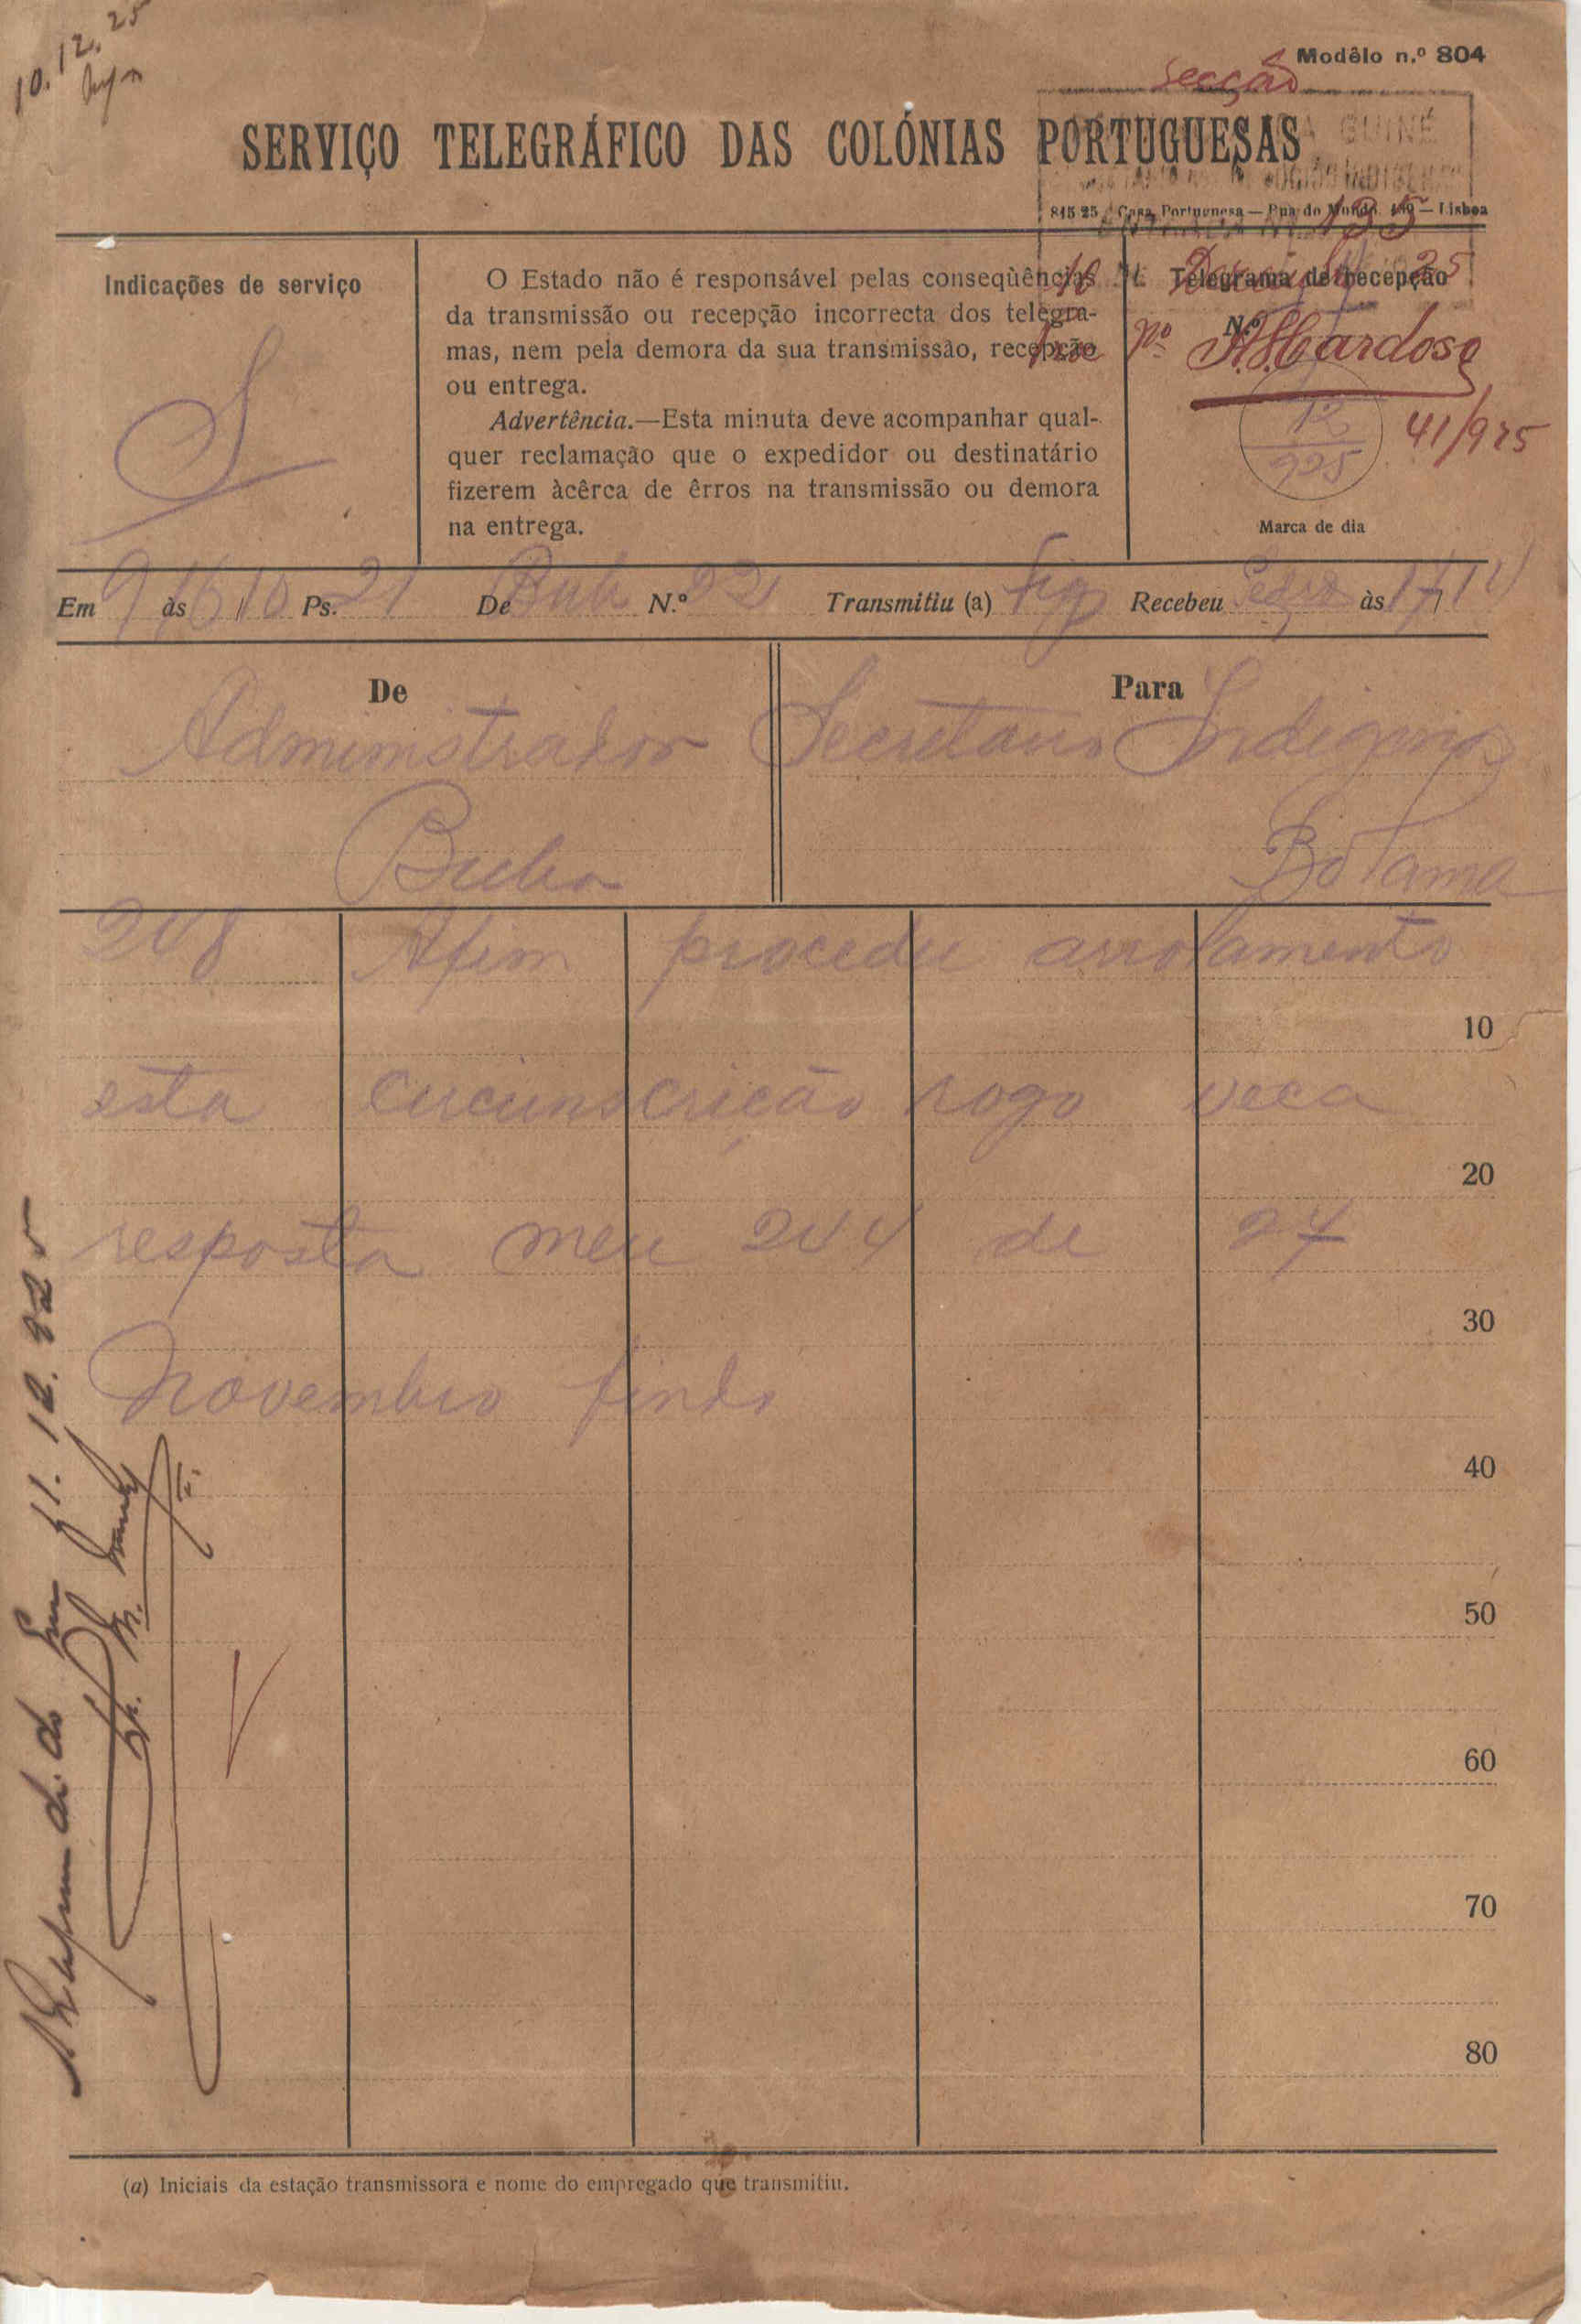 10.12.25
Modêlo n.º 804
Secção
SERVIÇO TELEGRÁFICO DAS COLÓNIAS PORTUGUESAS
GUINÉ
815 25 Casa Portuguesa — Rua do Mundo — Lisboa
135
Indicações de serviço
S
O Estado não é responsável pelas conseqùências
da transmissão ou recepção incorrecta dos telegra-
mas, nem pela demora da sua transmissão, recepção
ou entrega.
Advertência.—Esta minuta deve acompanhar qual-
quer reclamação que o expedidor ou destinatário
fizerem àcêrca de êrros na transmissão ou demora
na entrega.
10 Dezembro 25
Telegrama de recepção
N.º
Pº Cardoso
41/925
12
925
Marca de dia
Em 9 às 16/10 Ps. 21 De Bub N.º 221 Transmitiu (a) Recebeu às 17/
De
Para
Administrador
Secretario Indigenas
Buba
Bolama
208 Afim proceder arrolamento
10
esta circunscrição rogo veca
20
resposta meu 204 de 27
30
Novembro findo
40
50
60
70
80
11.12.925
(a) Iniciais da estação transmissora e nome do empregado que transmitiu.